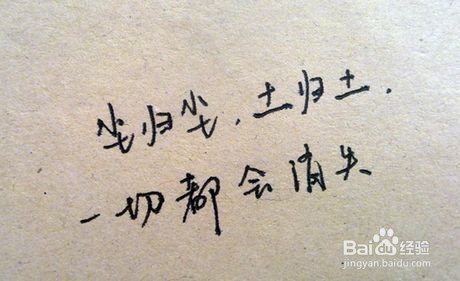 尘归尘，土归土，
一切都会消失
Baidu 经验
jingyan.baidu.com